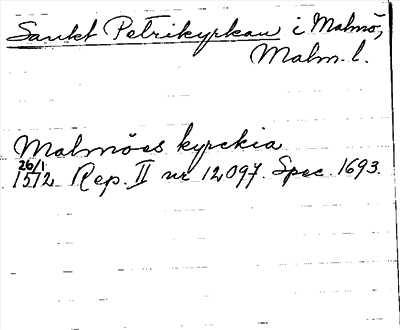 Sankt Petrikyrkan i Malmö,
Malm. l.
Malmöes kyrckia
26/1
1572 Rep. II nr 12097. Spec. 1693.